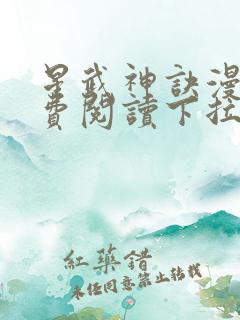 星武神訣漫
費閱讀下拉
紅藥錯
未經同意禁止轉載